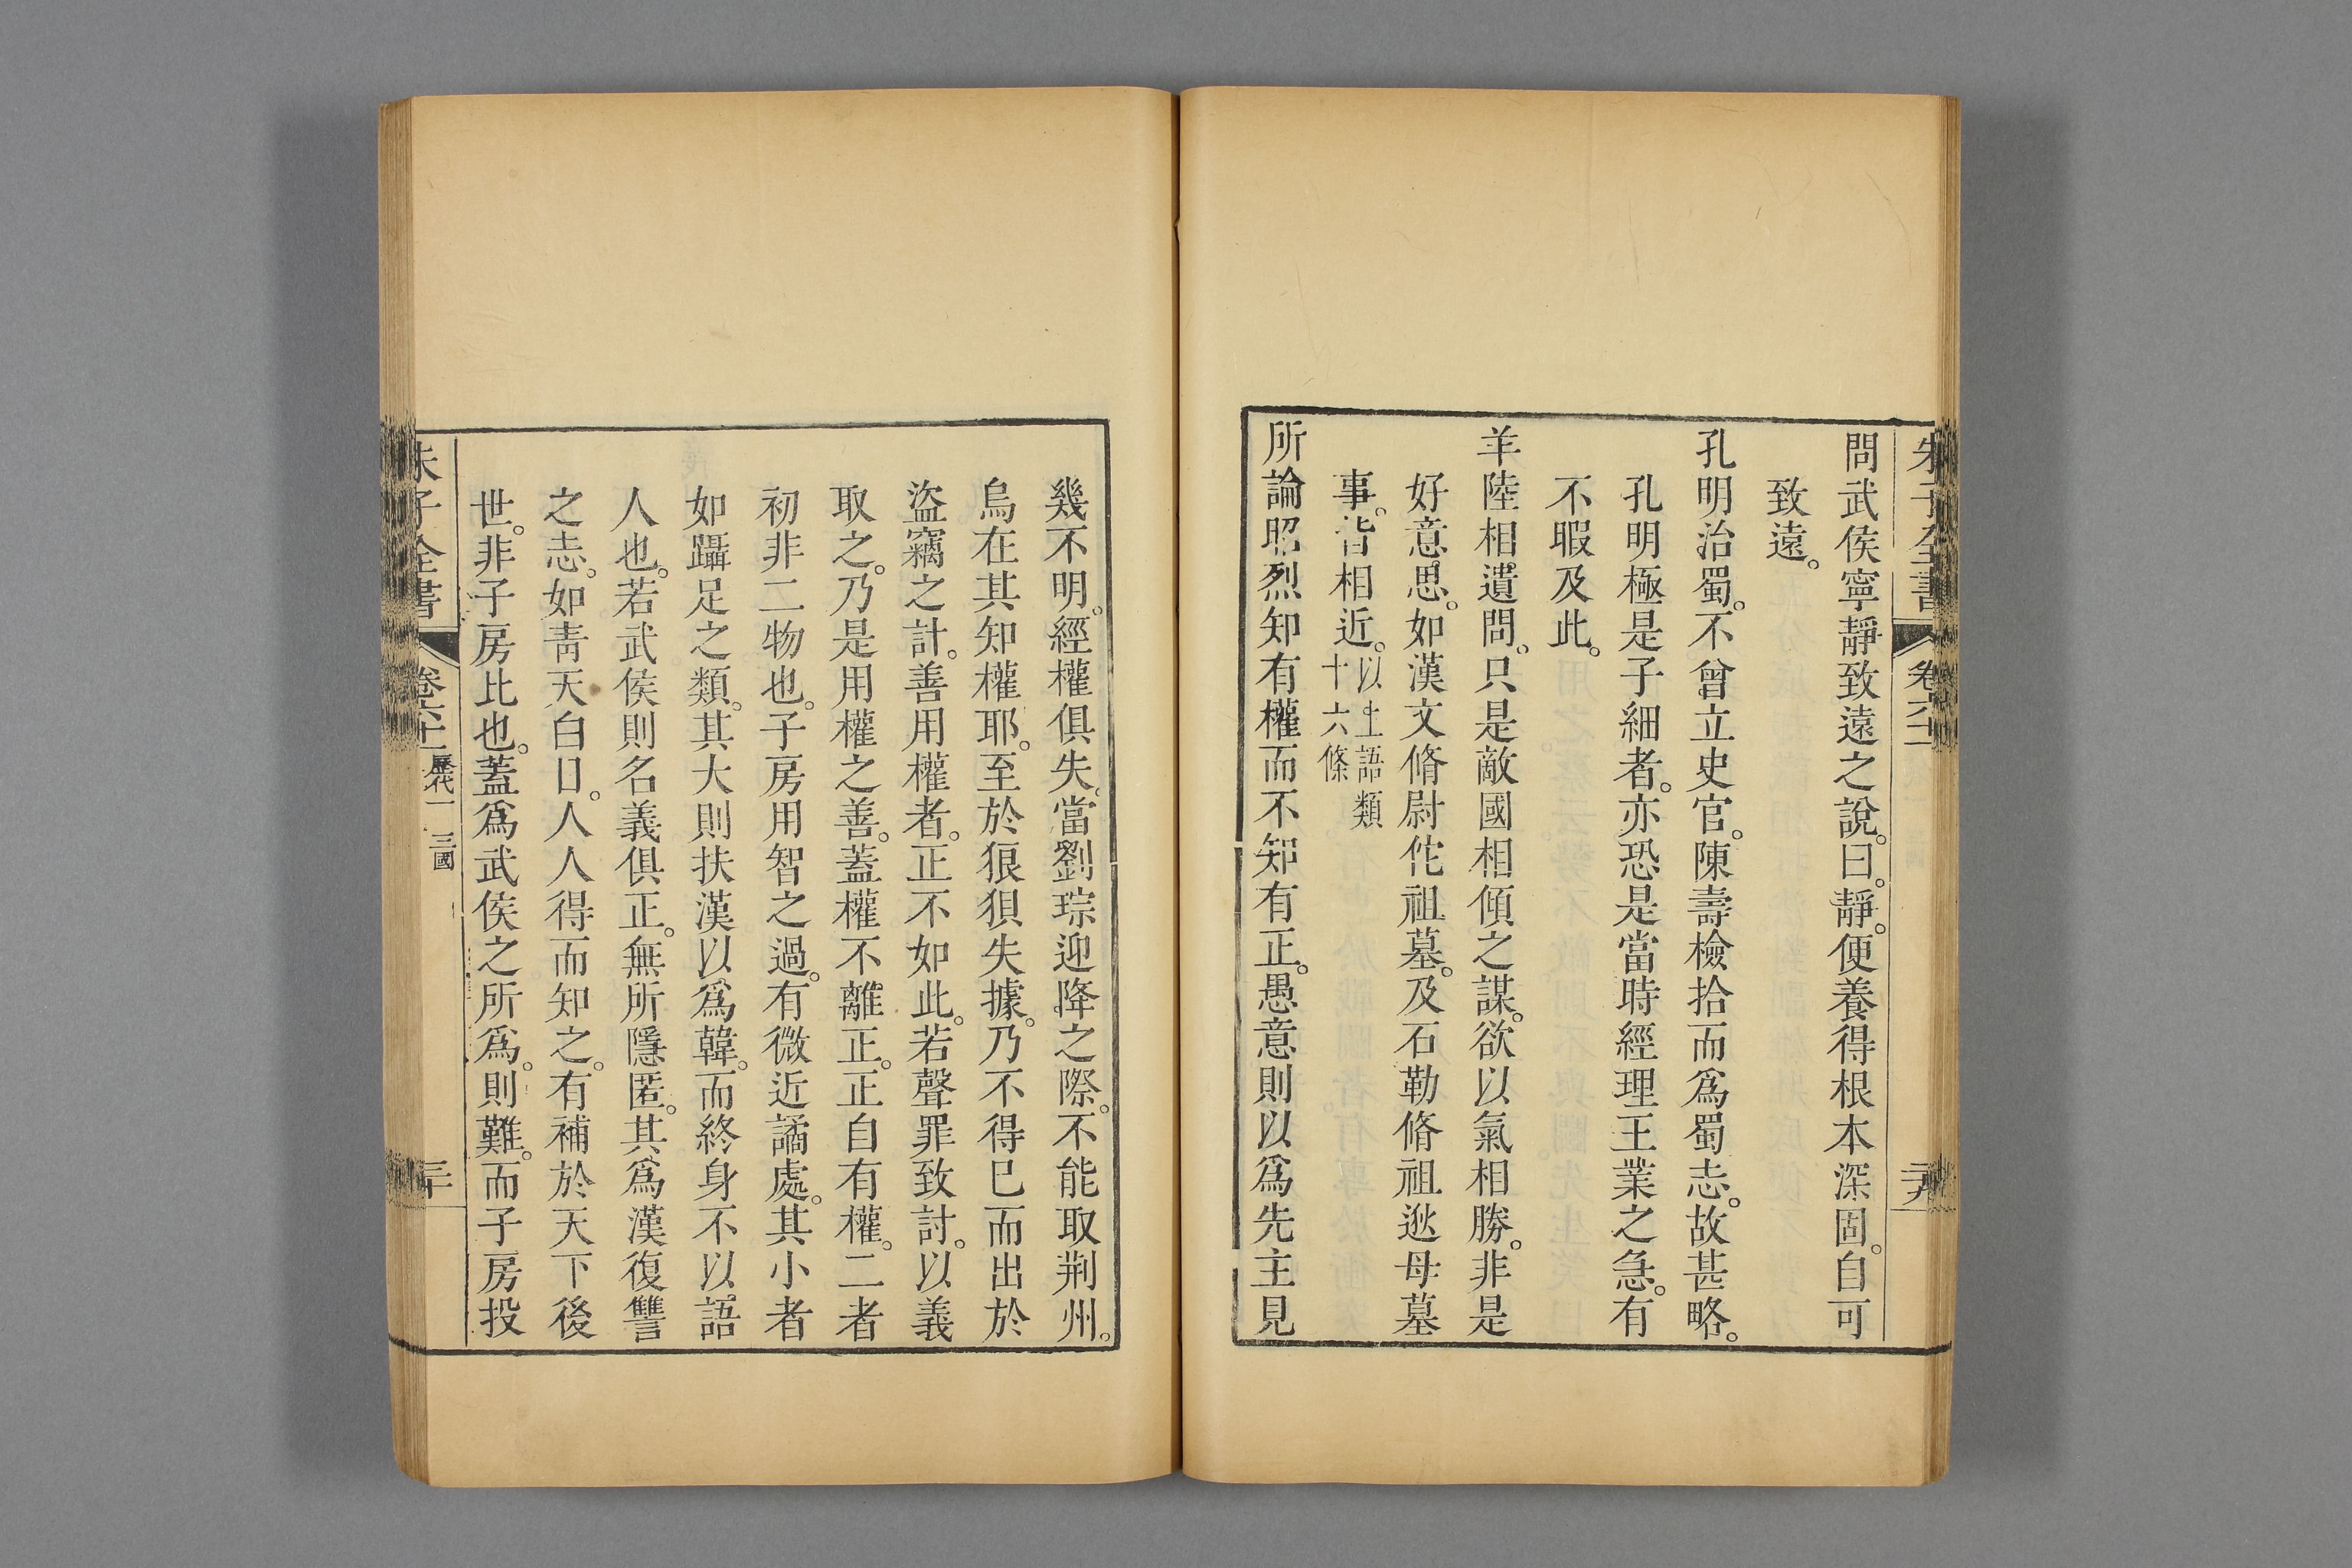 朱子全書 卷六十一 二十九
問武侯寧靜致遠之說。曰。靜。便養得根本深固。自可
致遠。
孔明治蜀。不曾立史官。陳壽檢拾而爲蜀志。故甚略。
孔明極是子細者。亦恐是當時經理王業之急。有
不暇及此。
羊陸相遺問。只是敵國相傾之謀。欲以氣相勝。非是
好意思。如漢文脩尉佗祖墓。及石勒脩祖逖母墓
事。皆相近。以上語類
十六條
所論昭烈知有權而不知有正。愚意則以爲先主見
幾不明。經權俱失。當劉琮迎降之際。不能取荆州。
烏在其知權耶。至於狼狽失據。乃不得已而出於
盜竊之計。善用權者。正不如此。若聲罪致討。以義
取之。乃是用權之善。蓋權不離正。正自有權。二者
初非二物也。子房用智之過。有微近譎處。其小者
如躡足之類。其大則扶漢以爲韓。而終身不以語
人也。若武侯則名義俱正。無所隱匿。其爲漢復讐
之志。如靑天白日。人人得而知之。有補於天下後
世。非子房比也。蓋爲武侯之所爲。則難。而子房投
朱子全書 卷六十一 歷代一 三國 三十